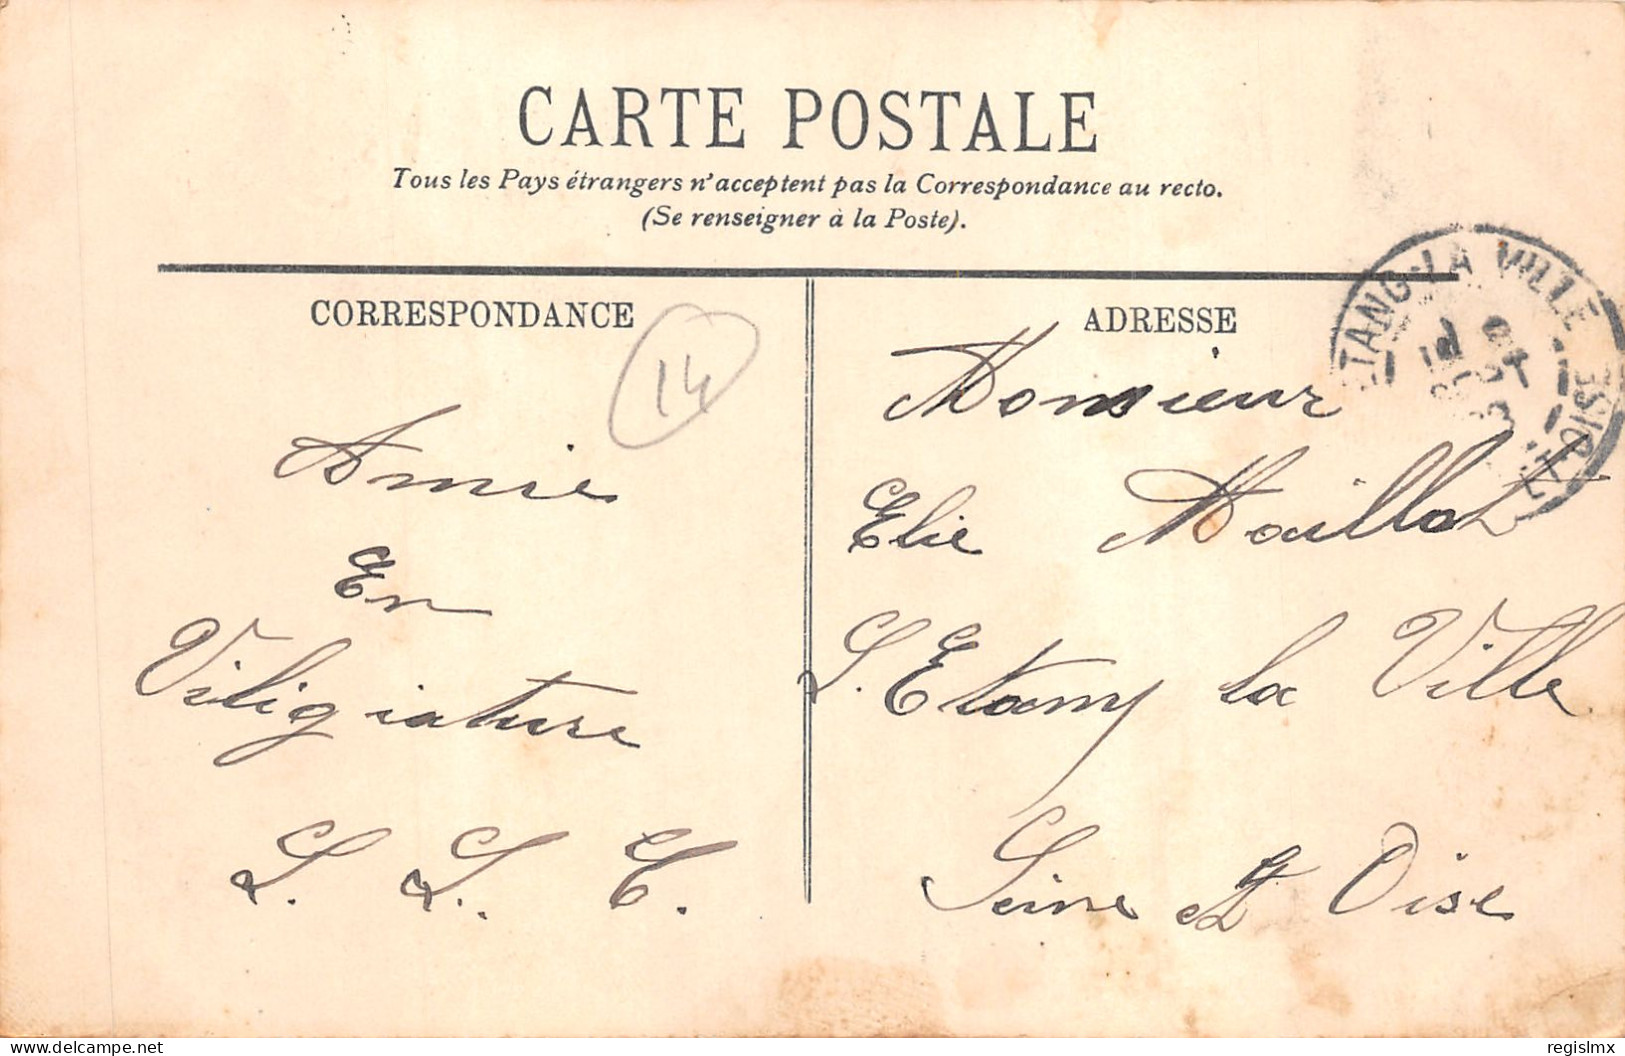 CARTE POSTALE
Tous les Pays étrangers n'acceptent pas la Correspondance au recto.
(Se renseigner à la Poste).
CORRESPONDANCE
14
Amie
En
Viligiature
L. L. C.
ADRESSE
ETANG-LA VILLE
OISE
Monsieur
Elie Maillot
L. Etang la Ville
Seine et Oise
www.delcampe.net
regislmx